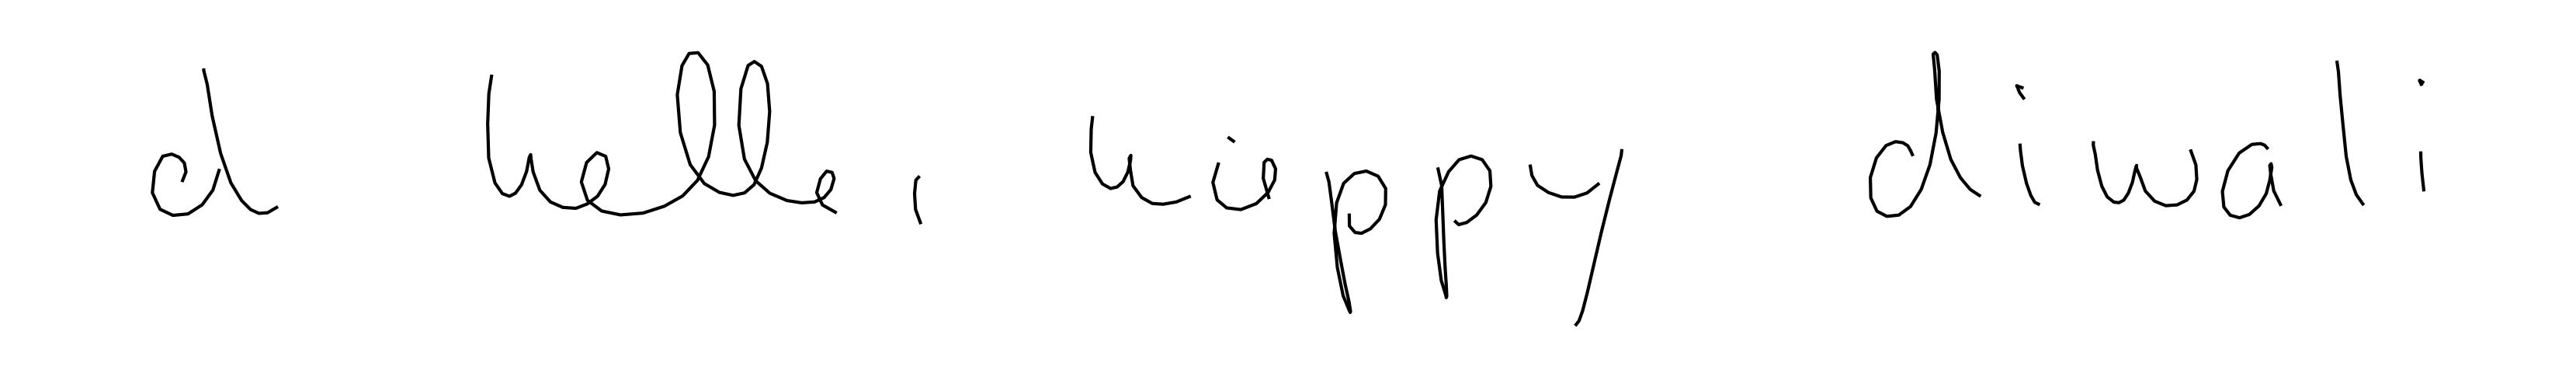 d hello, happy diwali